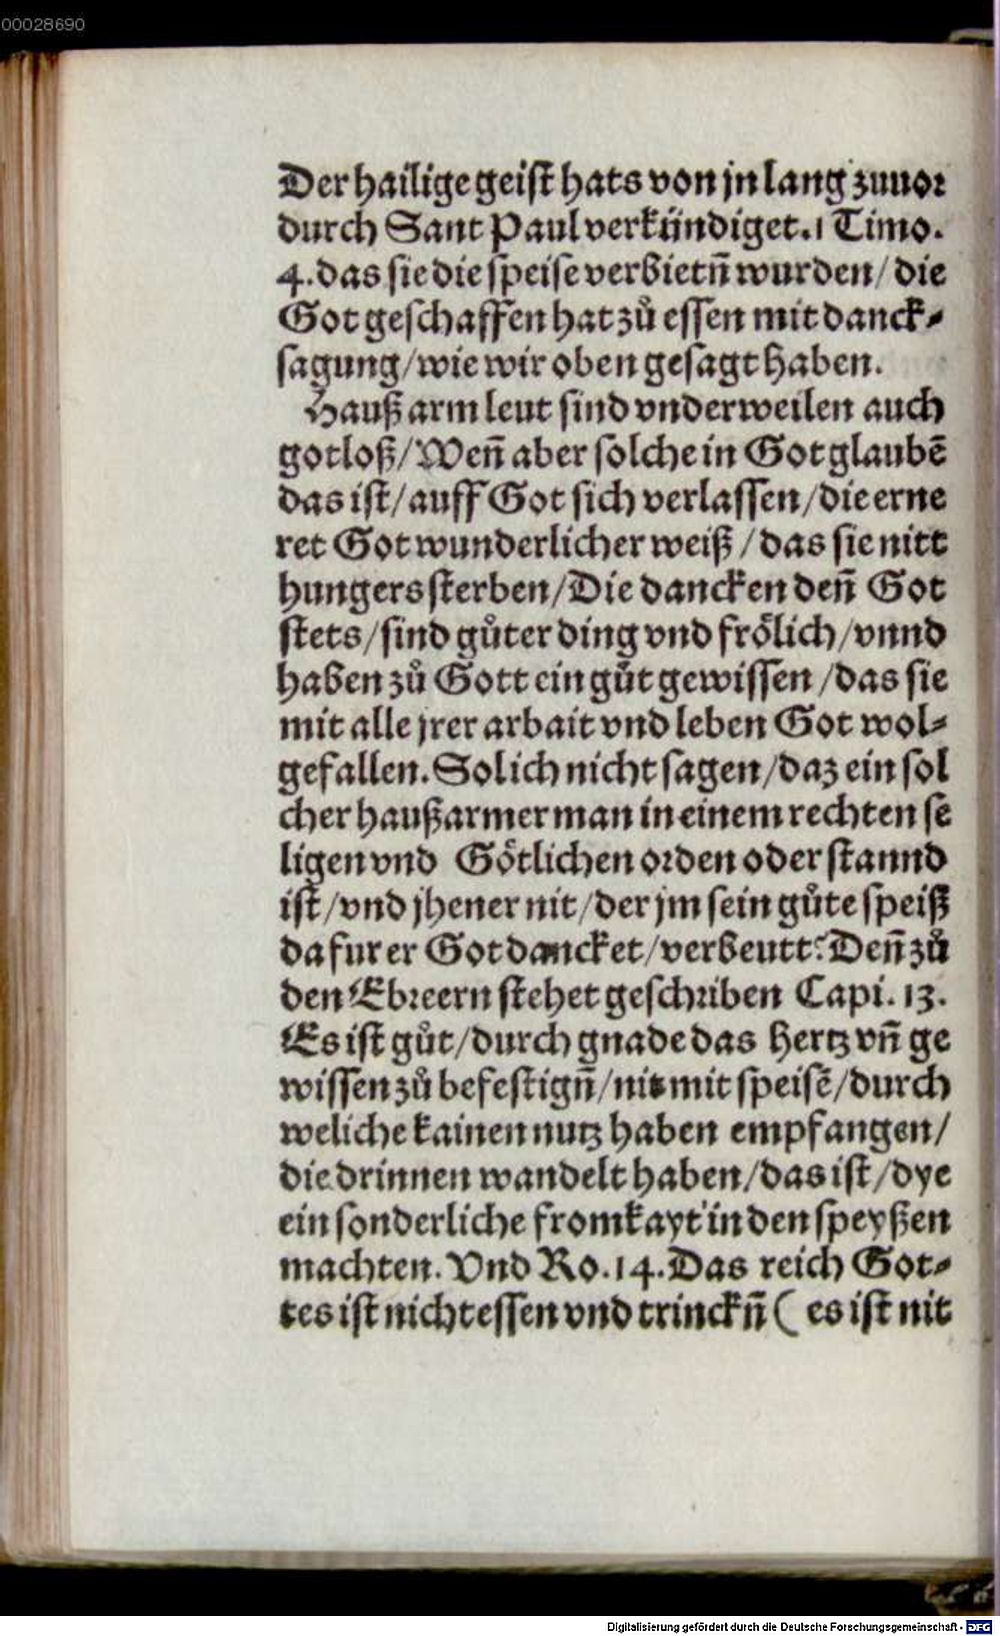 00028690
Der hailige geist hats von jn lang zuuor
durch Sant Paul verkündiget. 1 Timo.
4. das sie die speise verbietn̄ wurden / die
Got geschaffen hat zů essen mit danck⸗
sagung / wie wir oben gesagt haben.
Hauß arm leut sind vnderweilen auch
gotloß / Wen̄ aber solche in Got glaubē
das ist / auff Got sich verlassen / die erne
ret Got wunderlicher weiß / das sie nitt
hungers sterben / Die dancken den̄ Got
stets / sind gůter ding vnd frölich / vnnd
haben zů Gott ein gůt gewissen / das sie
mit alle jrer arbait vnd leben Got wol⸗
gefallen. Solich nicht sagen / daz ein sol
cher haußarmer man in einem rechten se
ligen vnd Götlichen orden oder stannd
ist / vnd jhener nit / der jm sein gůte speiß
dafur er Got dancket / verbeutt? Den̄ zů
den Ebreern stehet geschriben Capi. 13.
Es ist gůt / durch gnade das hertz vn̄ ge
wissen zů befestign̄ / nit mit speisē / durch
weliche kainen nutz haben empfangen /
die drinnen wandelt haben / das ist / dye
ein sonderliche fromkayt in den speyßen
machten. Vnd Ro. 14. Das reich Got⸗
tes ist nicht essen vnd trinckn̄ ( es ist nit
Digitalisierung gefördert durch die Deutsche Forschungsgemeinschaft - DFG